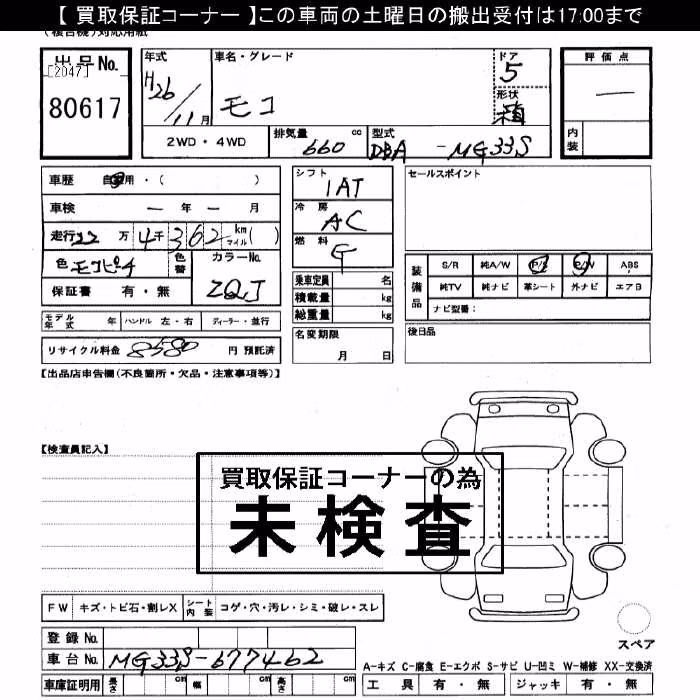 【 買取保証コーナー 】この車両の土曜日の搬出受付は17:00まで
(複合機)対応用紙
出品No.
[2047]
80617
年式
H26/11月
車名・グレード
モコ
ドア
5
形状
箱
評価点
―
内装
2WD・4WD
排気量
660 cc
型式
DBA-MG33S
車歴 自家用・( )
車検 ― 年 ― 月
走行 22万4千362 km マイル ( )
色 モコピーチ
色替
カラーNo.
ZQJ
保証書 有・無
モデル年式 年
ハンドル 左・右
ディーラー・並行
リサイクル料金 8580 円 預託済
シフト
IAT
冷房
AC
燃料
G
乗車定員 名
積載量 kg
総重量 kg
名変期限
月 日
セールスポイント
装備品
S/R 純A/W P/S P/W ABS
純TV 純ナビ 革シート 外ナビ エアB
ナビ型番:
後日品
【出品店申告欄(不良箇所・欠品・注意事項等)】
【検査員記入】
買取保証コーナーの為
未検査
FW キズ・トビ石・割レX
シート内装 コゲ・穴・汚レ・シミ・破レ・スレ
登録No.
車台No. MG33S-677462
車庫証明用 長さ cm 幅 cm 高さ cm
スペア
A-キズ C-腐食 E-エクボ S-サビ U-凹ミ W-補修 XX-交換済
工具 有・無 ジャッキ 有・無